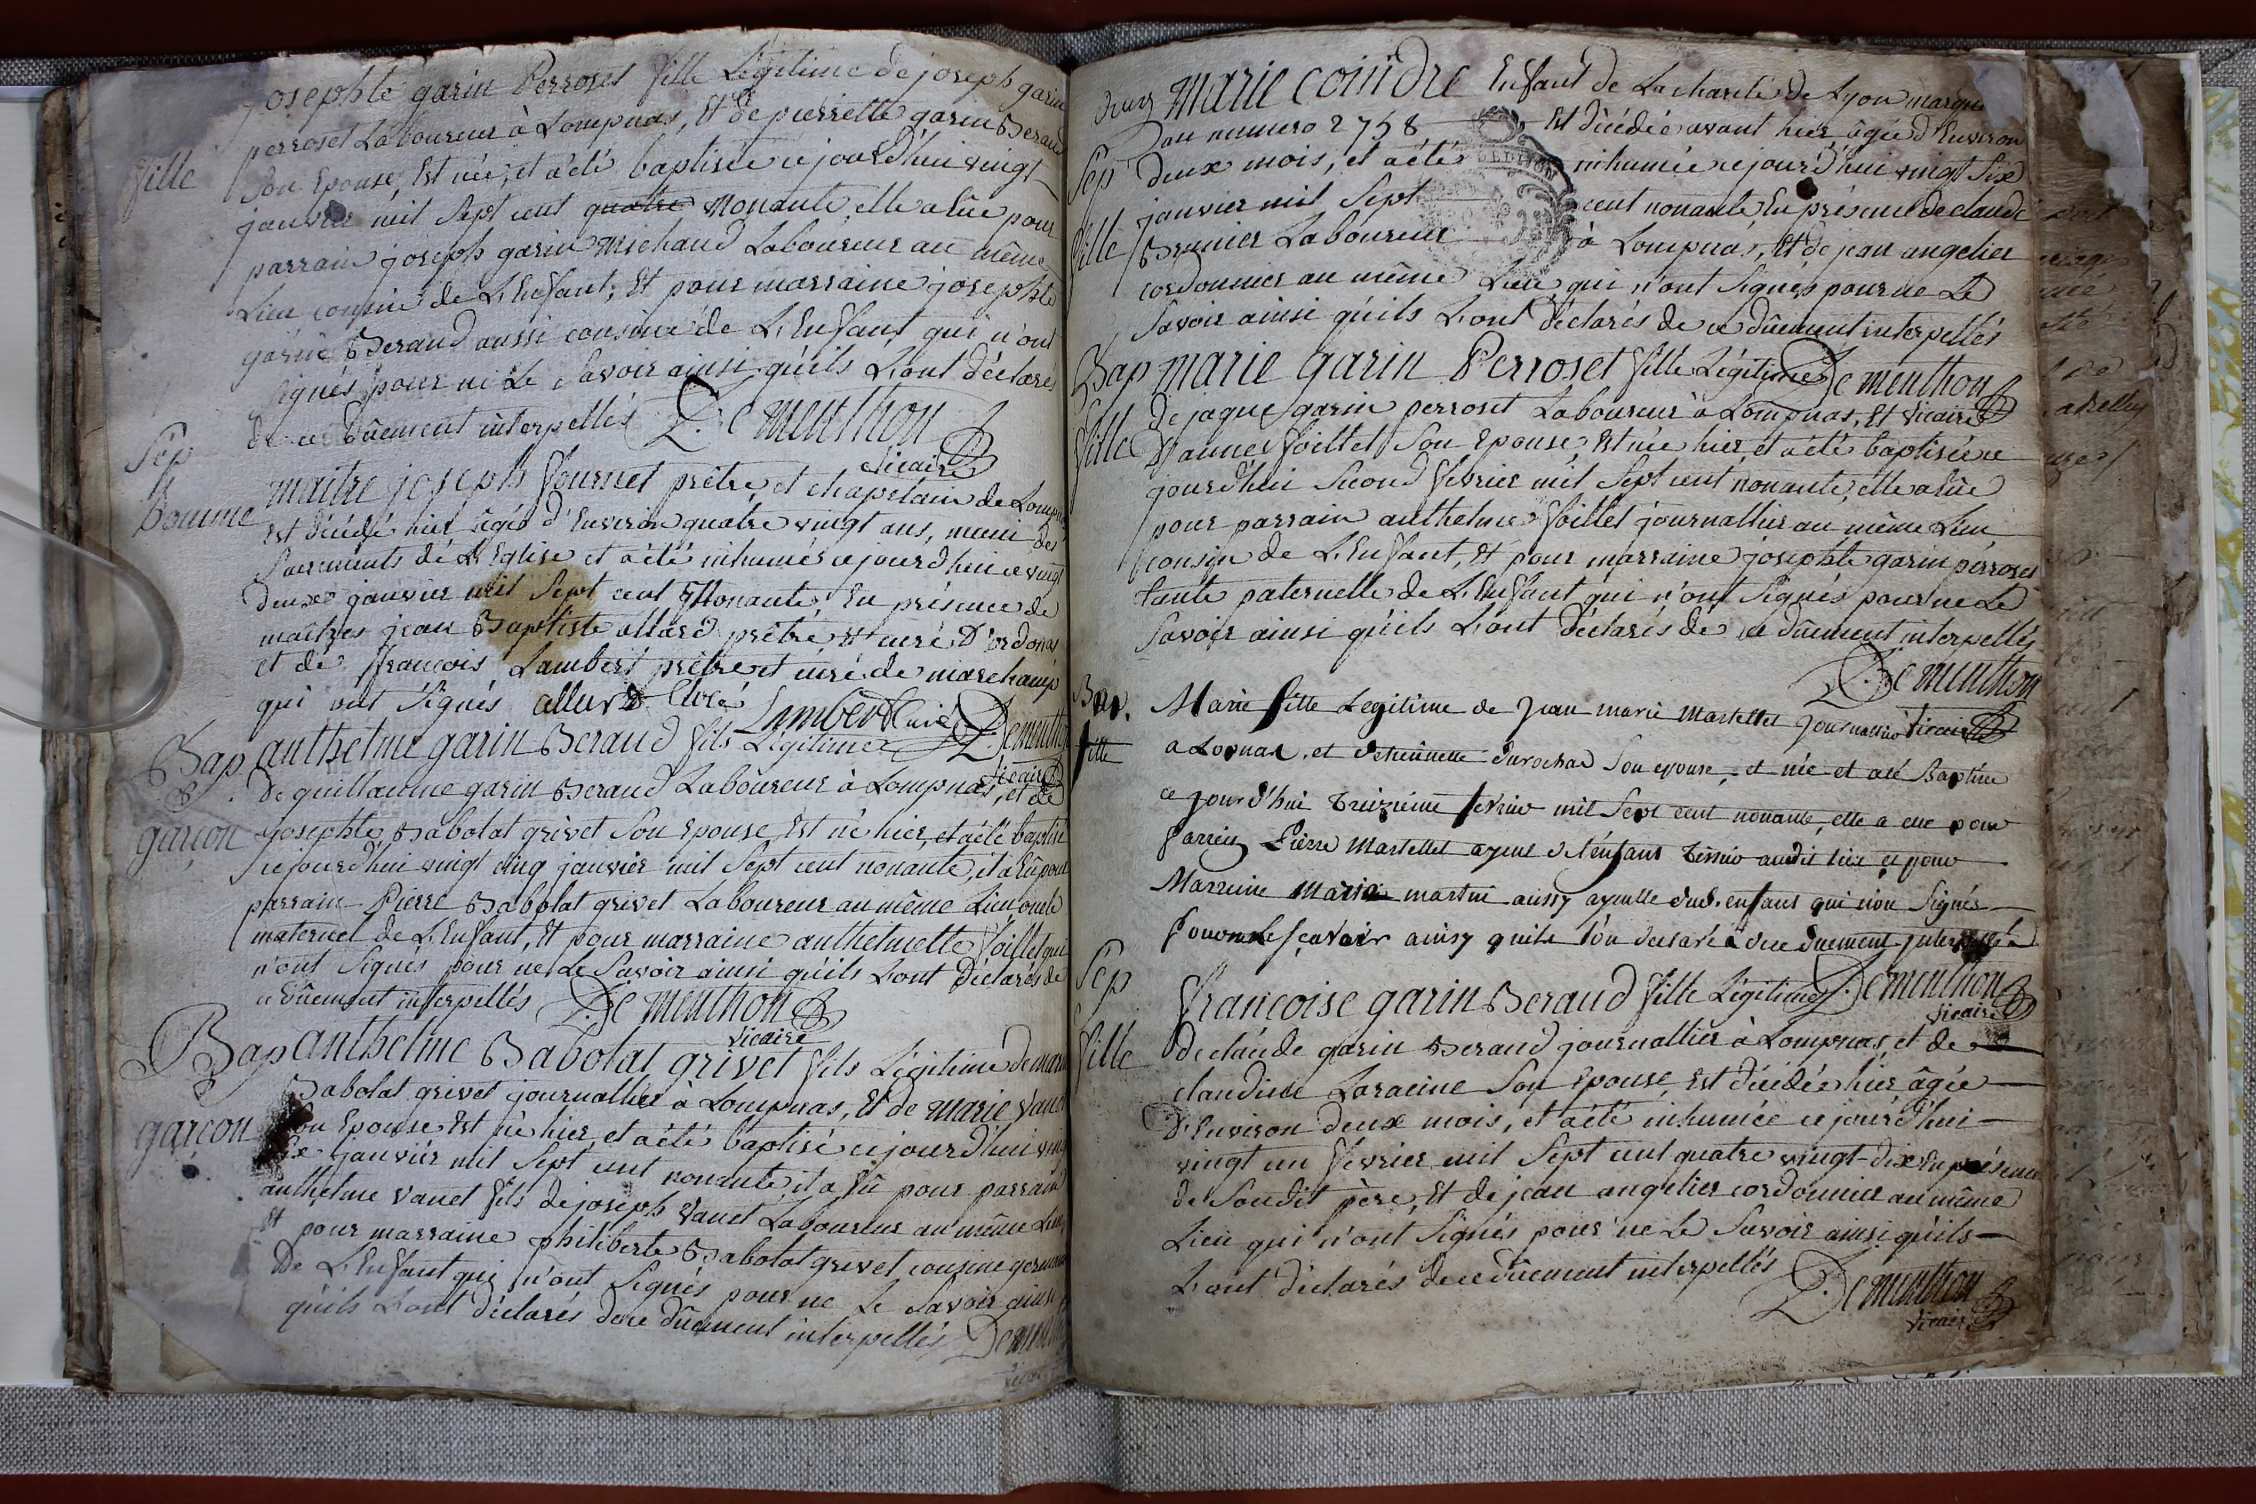 josephte garin Perroset fille Légitime de joseph garin
perroset Laboureur à Lompnas, Et de pierrette garin Beraud
fille
son Epouse, Est née, et a été baptisée ce jourd'hui vingt
janvier mil sept cent quatre nonante, elle a Eûe pour
parrain joseph garin michaud Laboureur au même
Lieu cousin de L'Enfant; Et pour marraine josephte
garin Beraud aussi cousine de L'Enfant qui n'ont
signés pour ne Le savoir ainsi qu'ils L'ont déclarés
de ce dûement interpellés Dementhon
vicaire
Sep
homme
maitre joseph fournet prêtre et chapelain de Lompnas
Est décédé hier âgée d'Environ quatre vingt ans, muni des
Sacrements de L'Eglise et a été inhumé ce jourd'hui ce vingt
deux janvier mil sept cent Nonante, En présence de
maitres jean Baptiste allard prêtre et curé D'ordonas
et de françois Lambert prêtre et curé de marchamp
qui ont signés allard Curé Lambert Curé Dementhon
vicaire
Bap
garçon
anthelme garin Beraud fils Légitime
De guillaume garin Beraud Laboureur à Lompnas, et de
josephte Babolat grivet son Epouse, Est né hier, et a été baptisé
ce jourd'hui vingt cinq janvier mil sept cent nonante, il a Eû pour
parrain Pierre Babolat grivet Laboureur au même Lieu oncle
maternel de L'Enfant, Et pour marraine anthelmette foillet qui
n'ont signés pour ne Le savoir ainsi qu'ils L'ont déclarés de
ce dûement interpellés Dementhon
vicaire
Bap
garçon
anthelme Babolat grivet fils Légitime de
Babolat grivet journallier à Lompnas, Et de marie vanet
son Epouse Est né hier, et a été baptisé ce jourd'hui vingt
six janvier mil sept cent nonante, il a Eû pour parrain
anthelme vanet fils de joseph vanet Laboureur au même Lieu,
Et pour marraine philiberte Babolat grivet cousine germaine
De L'Enfant qui n'ont signés pour ne Le savoir ainsi
qu'ils L'ont déclarés de ce dûement interpellés Dementhon
marie coindre Enfant de La charité de Lyon marquée
au numero 2758 Et décédée avant hier âgée d'Environ
Sep
fille
deux mois, et a été inhumée ce jourd'hui vingt six
janvier mil sept cent nonante En présence de claude
Brunier Laboureur à Lompnas, Et de jean angelier
cordonnier au même Lieu qui n'ont signés pour ne Le
savoir ainsi qu'ils L'ont déclarés de ce dûement interpellés
Dementhon
vicaire
Bap
fille
marie garin Perroset fille Légitime
De jaque garin perroset Laboureur à Lompnas, Et
D'anne foillet son Epouse, Est née hier, et a été baptisée ce
jourd'hui second fevrier mil sept cent nonante, elle a Eûe
pour parrain anthelme foillet journallier au même Lieu,
cousin de L'Enfant, Et pour marraine josephte garin perroset
tante paternelle de L'Enfant qui n'ont signés pour ne Le
savoir ainsi qu'ils L'ont déclarés de ce dûement interpellés
Dementhon
vicaire
Bap.
fille
Marie fille Legitime de Jean marie Martellet Journallier
a Lopnas, et d'etiennette durochad son epouse, et née et a été Baptisée
ce jour d'hui treizieme fevrier mil sept cent nonante, elle a eue pour
Parrein Pierre Martellet ayeul de l'enfant tissier audit lieu et pour
Marreine Marie martin aussy ayeulle dud. enfant qui n'on signés
Pour ne le sçavoir ainsy quils l'on declaré de ce duement interpellés
Dementhon
vicaire
Sep
fille
françoise garin Beraud fille Légitime
de claude garin Beraud journallier à Lompnas, et de
claudine Laracine son Epouse, Est décédée hier âgée
D'Environ deux mois, et a été inhumée ce jourd'hui
vingt un février mil sept cent quatre vingt-dix En présence
de sondit père, Et de jean angelier cordonnier au même
Lieu qui n'ont signés pour ne Le savoir ainsi qu'ils
L'ont déclarés de ce dûement interpellés
Dementhon
vicaire